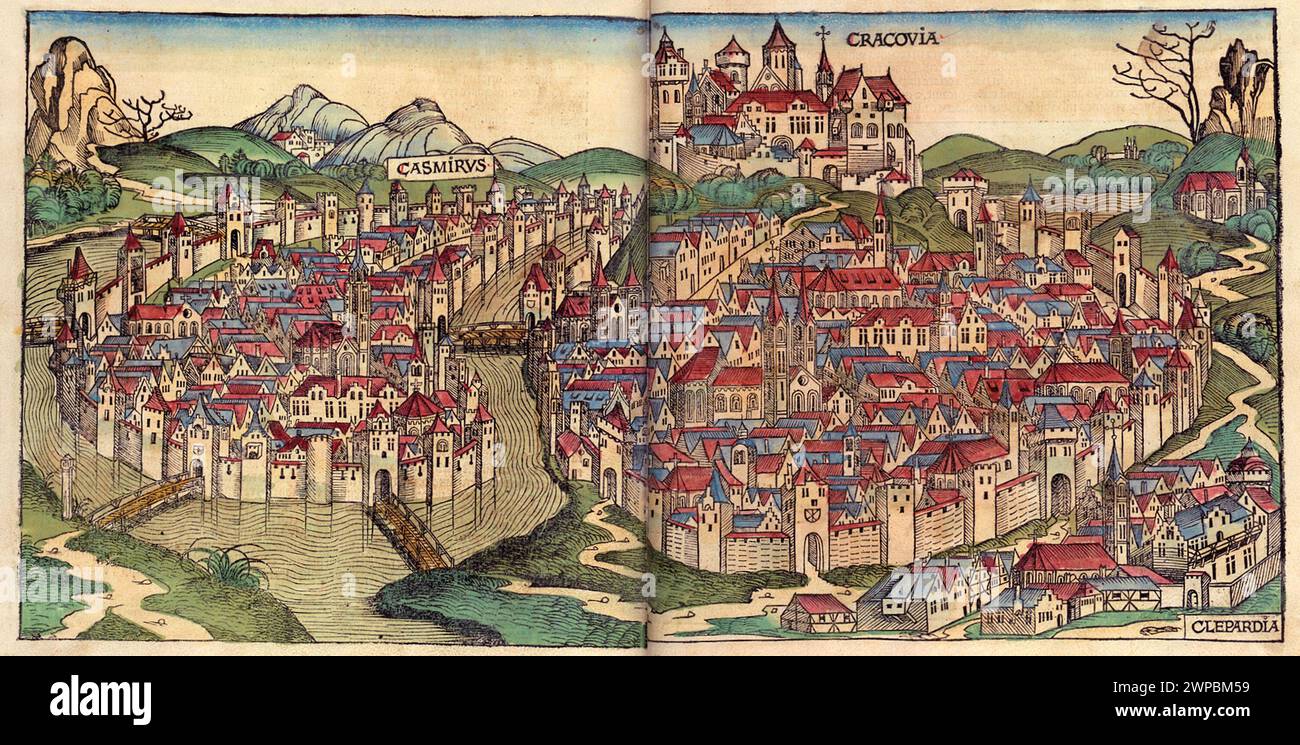 CRACOVIA
CASMIRVS
CLEPARDIA
alamy
a
a
alamy
Image ID: 2WPBM59
www.alamy.com